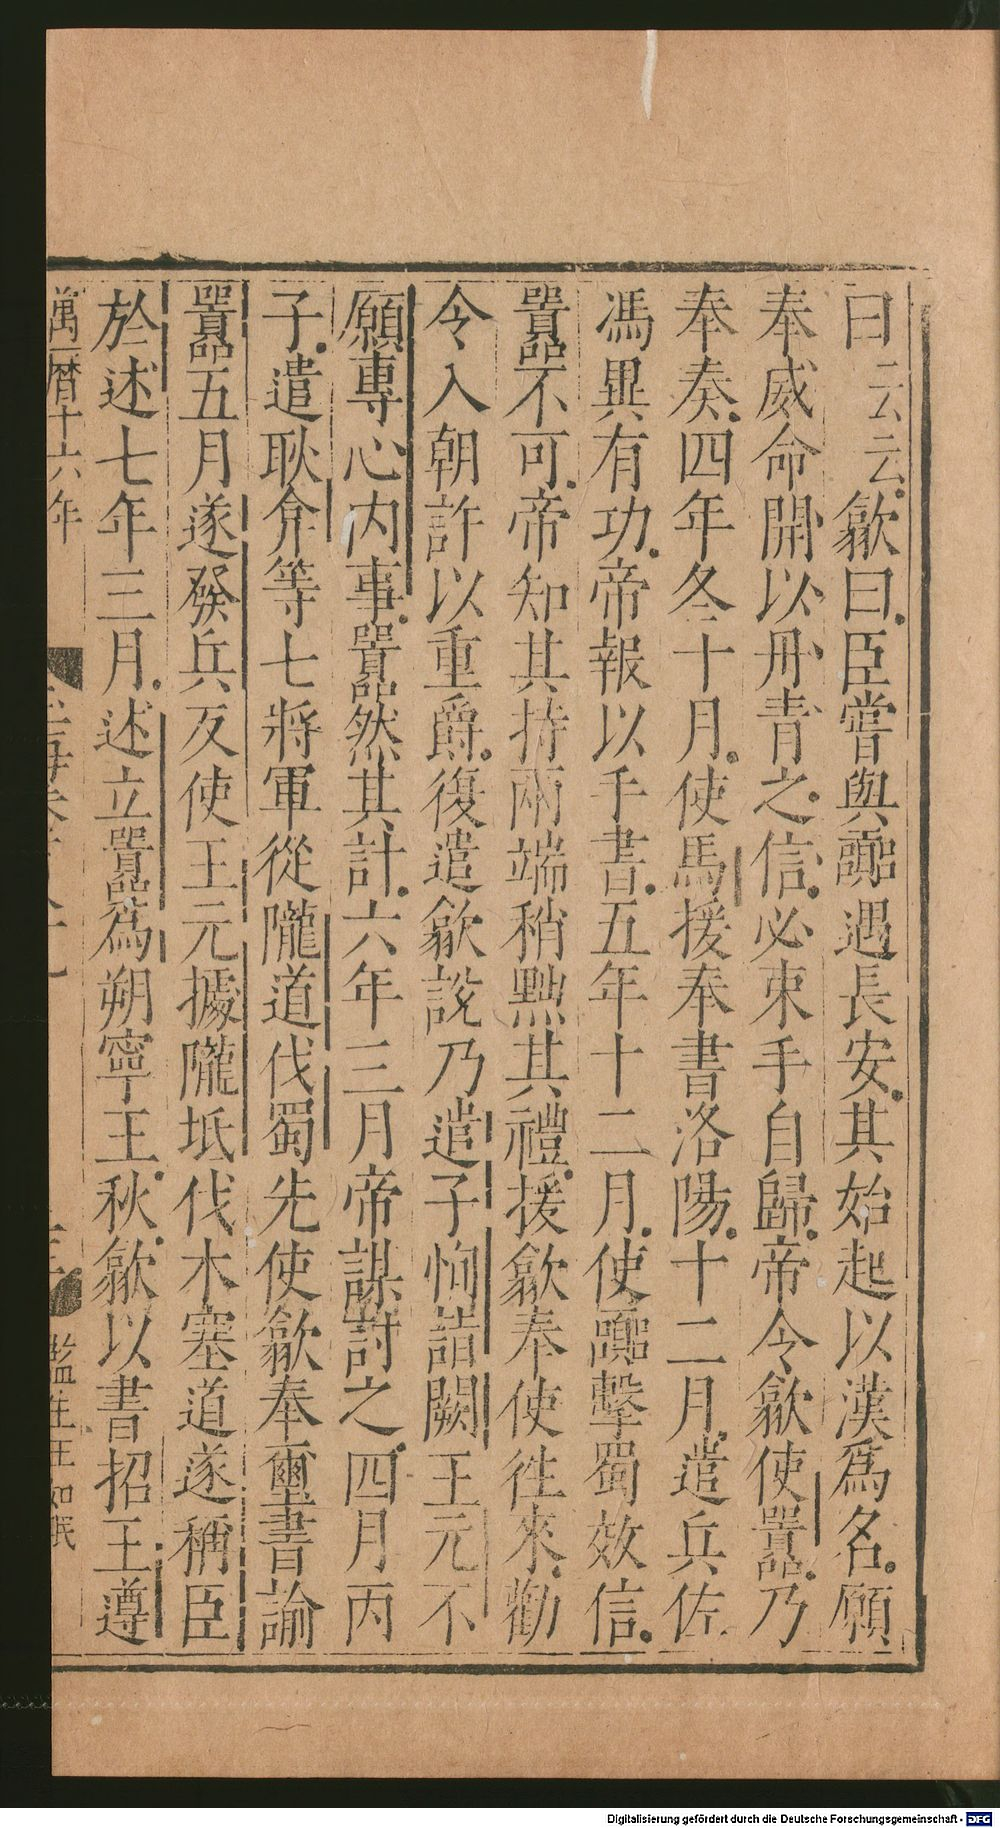 曰云云歙曰臣嘗與囂遇長安其始起以漢爲名願
奉威命開以丹青之信必束手自歸帝令歙使囂乃
奉奏四年冬十月使馬援奉書洛陽十二月遣兵佐
馮異有功帝報以手書五年十二月使囂擊蜀效信
囂不可帝知其持兩端稍黜其禮援歙奉使徃來勸
令入朝許以重爵復遣歙說乃遣子恂詣闕王元不
願專心内事囂然其計六年三月帝謀討之四月丙
子遣耿弇等七將軍從隴道伐蜀先使歙奉璽書諭
囂五月遂發兵反使王元據隴坻伐木塞道遂稱臣
於述七年三月述立囂爲朔寧王秋歙以書招王遵
萬曆十六年
監生王如珉
Digitalisierung gefördert durch die Deutsche Forschungsgemeinschaft - DFG